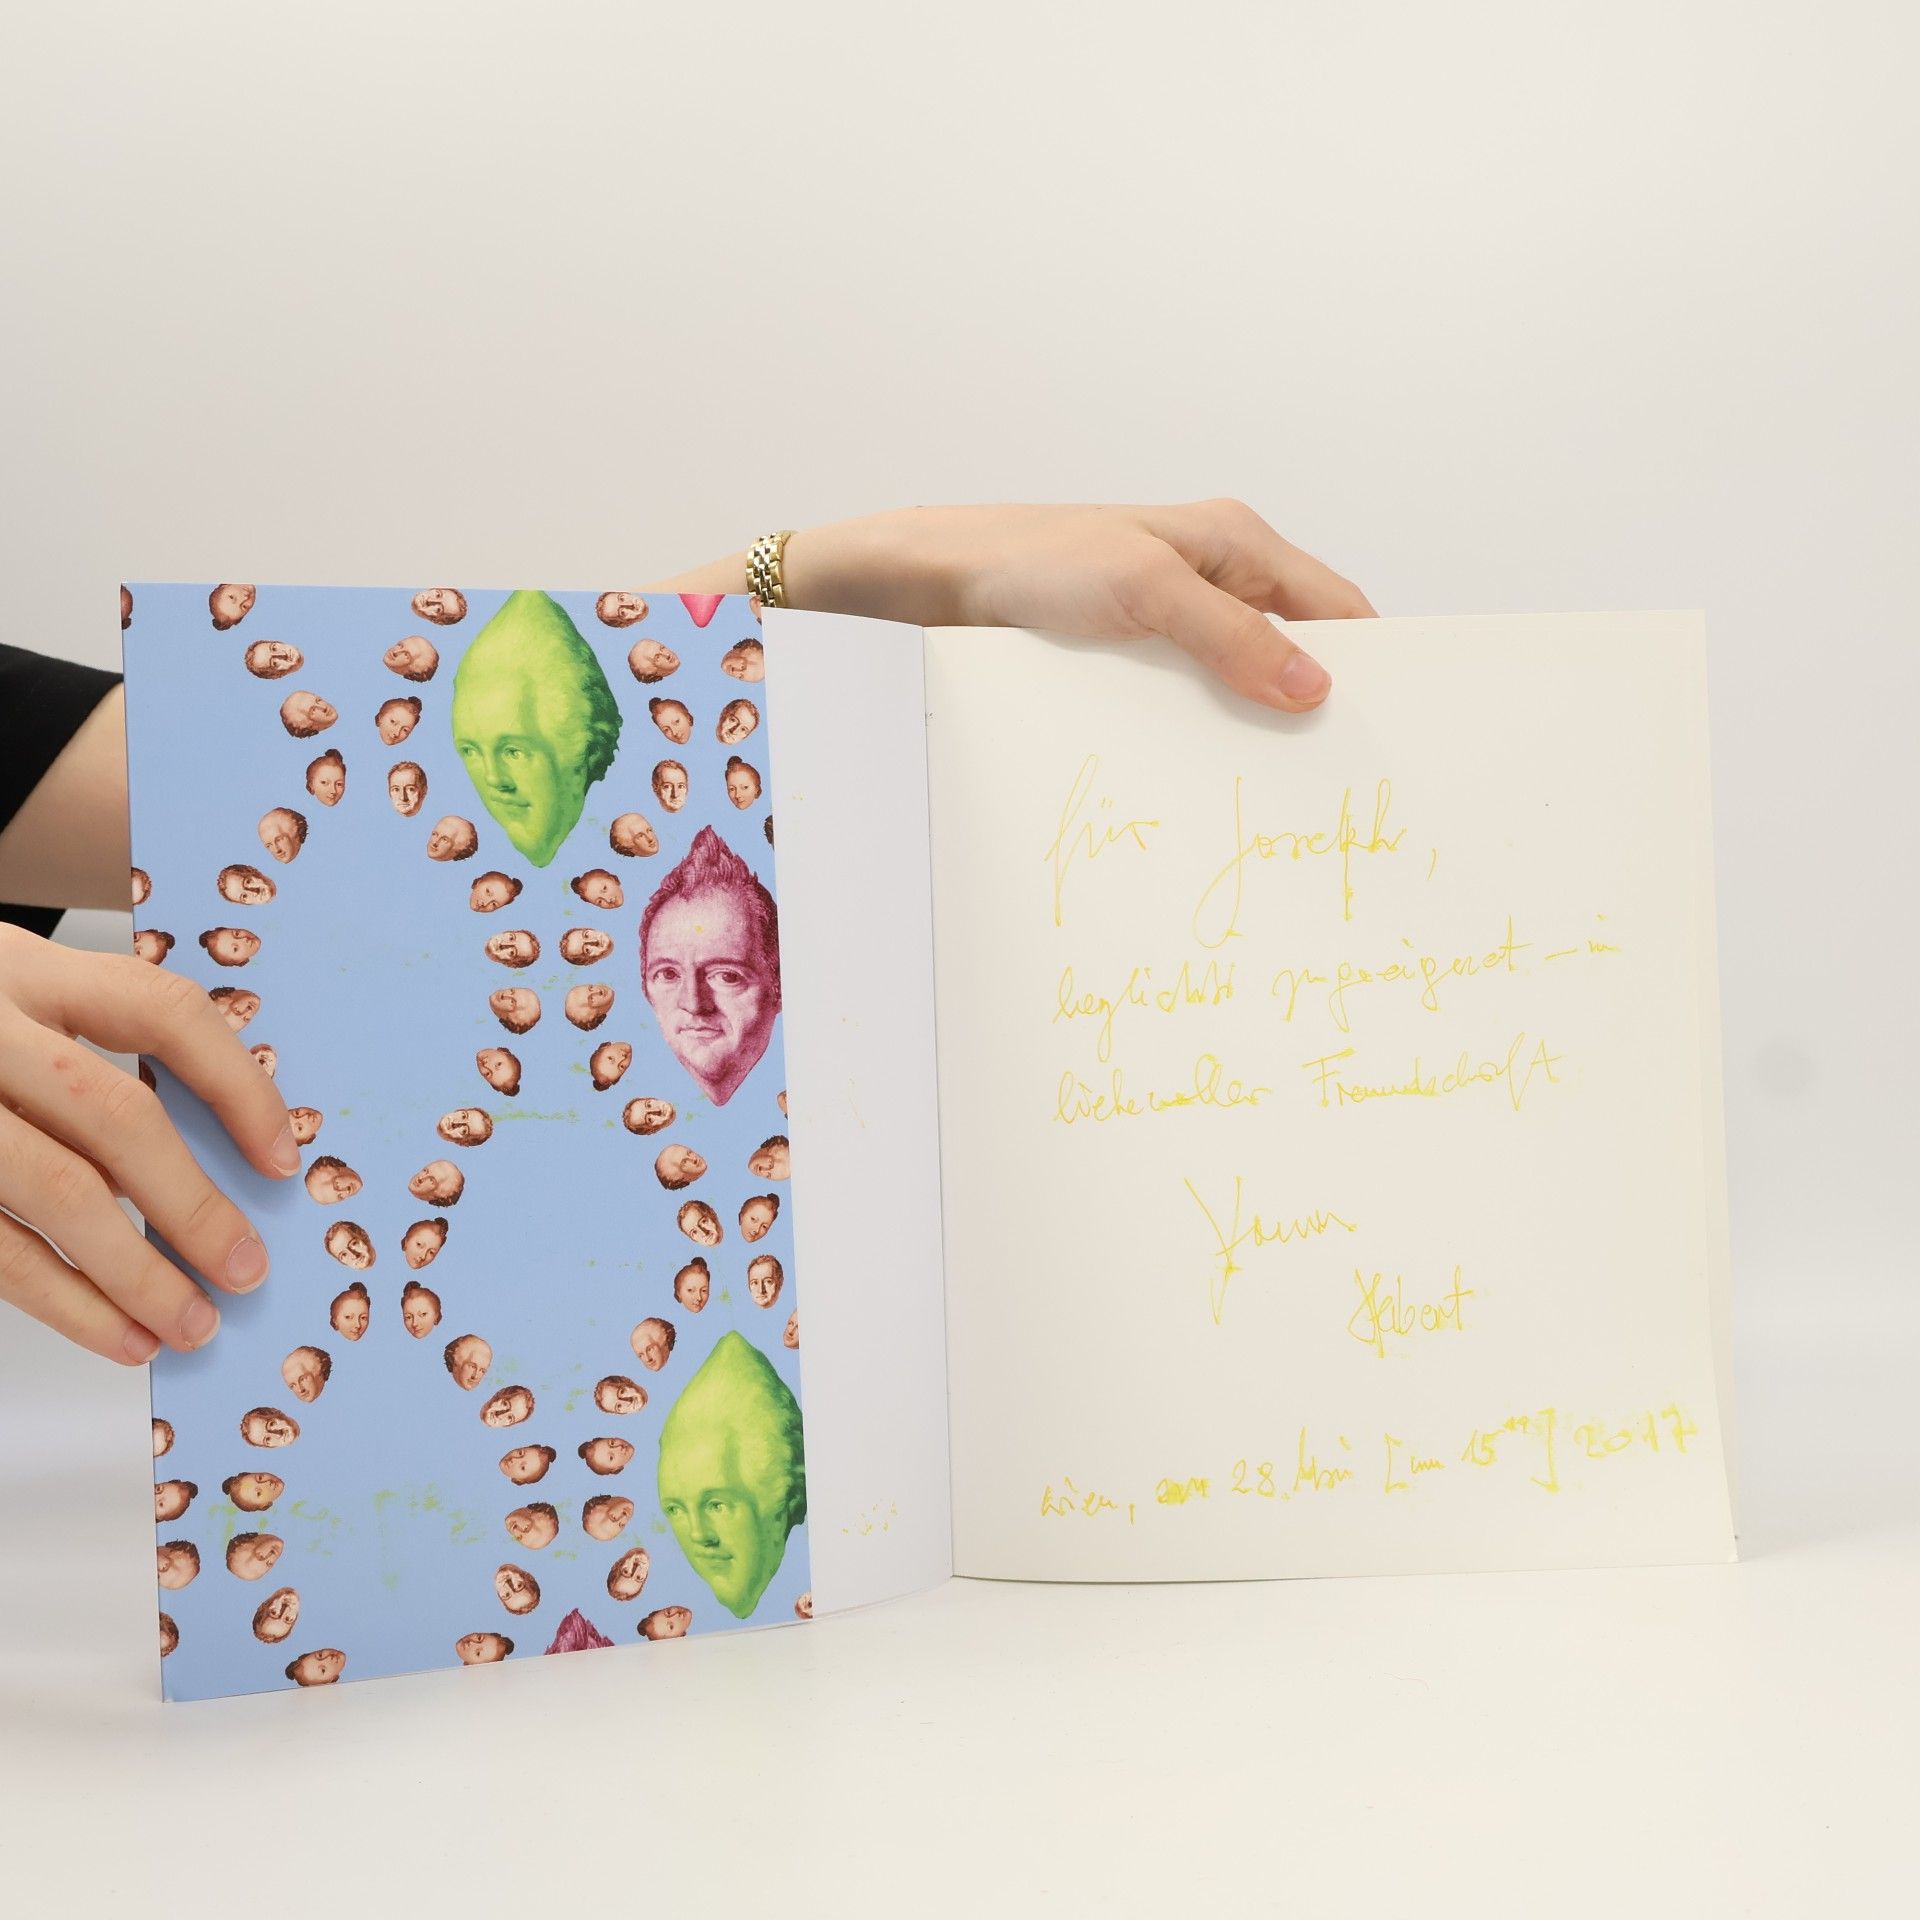 für Joseph,
herzlichst zugeeignet – in
liebevoller Freundschaft
Hubert
Wien, am 28. Mai [um 15⁴⁹] 2017